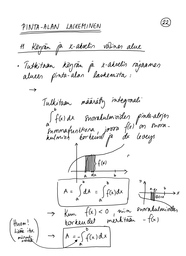 PINTA-ALAN LASKEMINEN
22
# Käyrän ja x-akselin välinen alue
• Tutkitaan käyrän ja x-akselin rajaaman
alueen pinta-alan laskemista.
→
Tutkitaan määrätty integraali
∫ₐᵇ f(x)dx suorakulmioiden pinta-alojen
summafunktiona, jossa f(x) on suora-
kulmiot korkeus ja dx leveys
f(x)
a
b
x
A = ∫dA = ∫ₐᵇ f(x)dx
→ Kun f(x) < 0, niin suorakulmioiden
korkeudet merkitään -f(x)
Huom!
Lisää itse
miinus-
merkki
→ A = -∫ₐᵇ f(x)dx